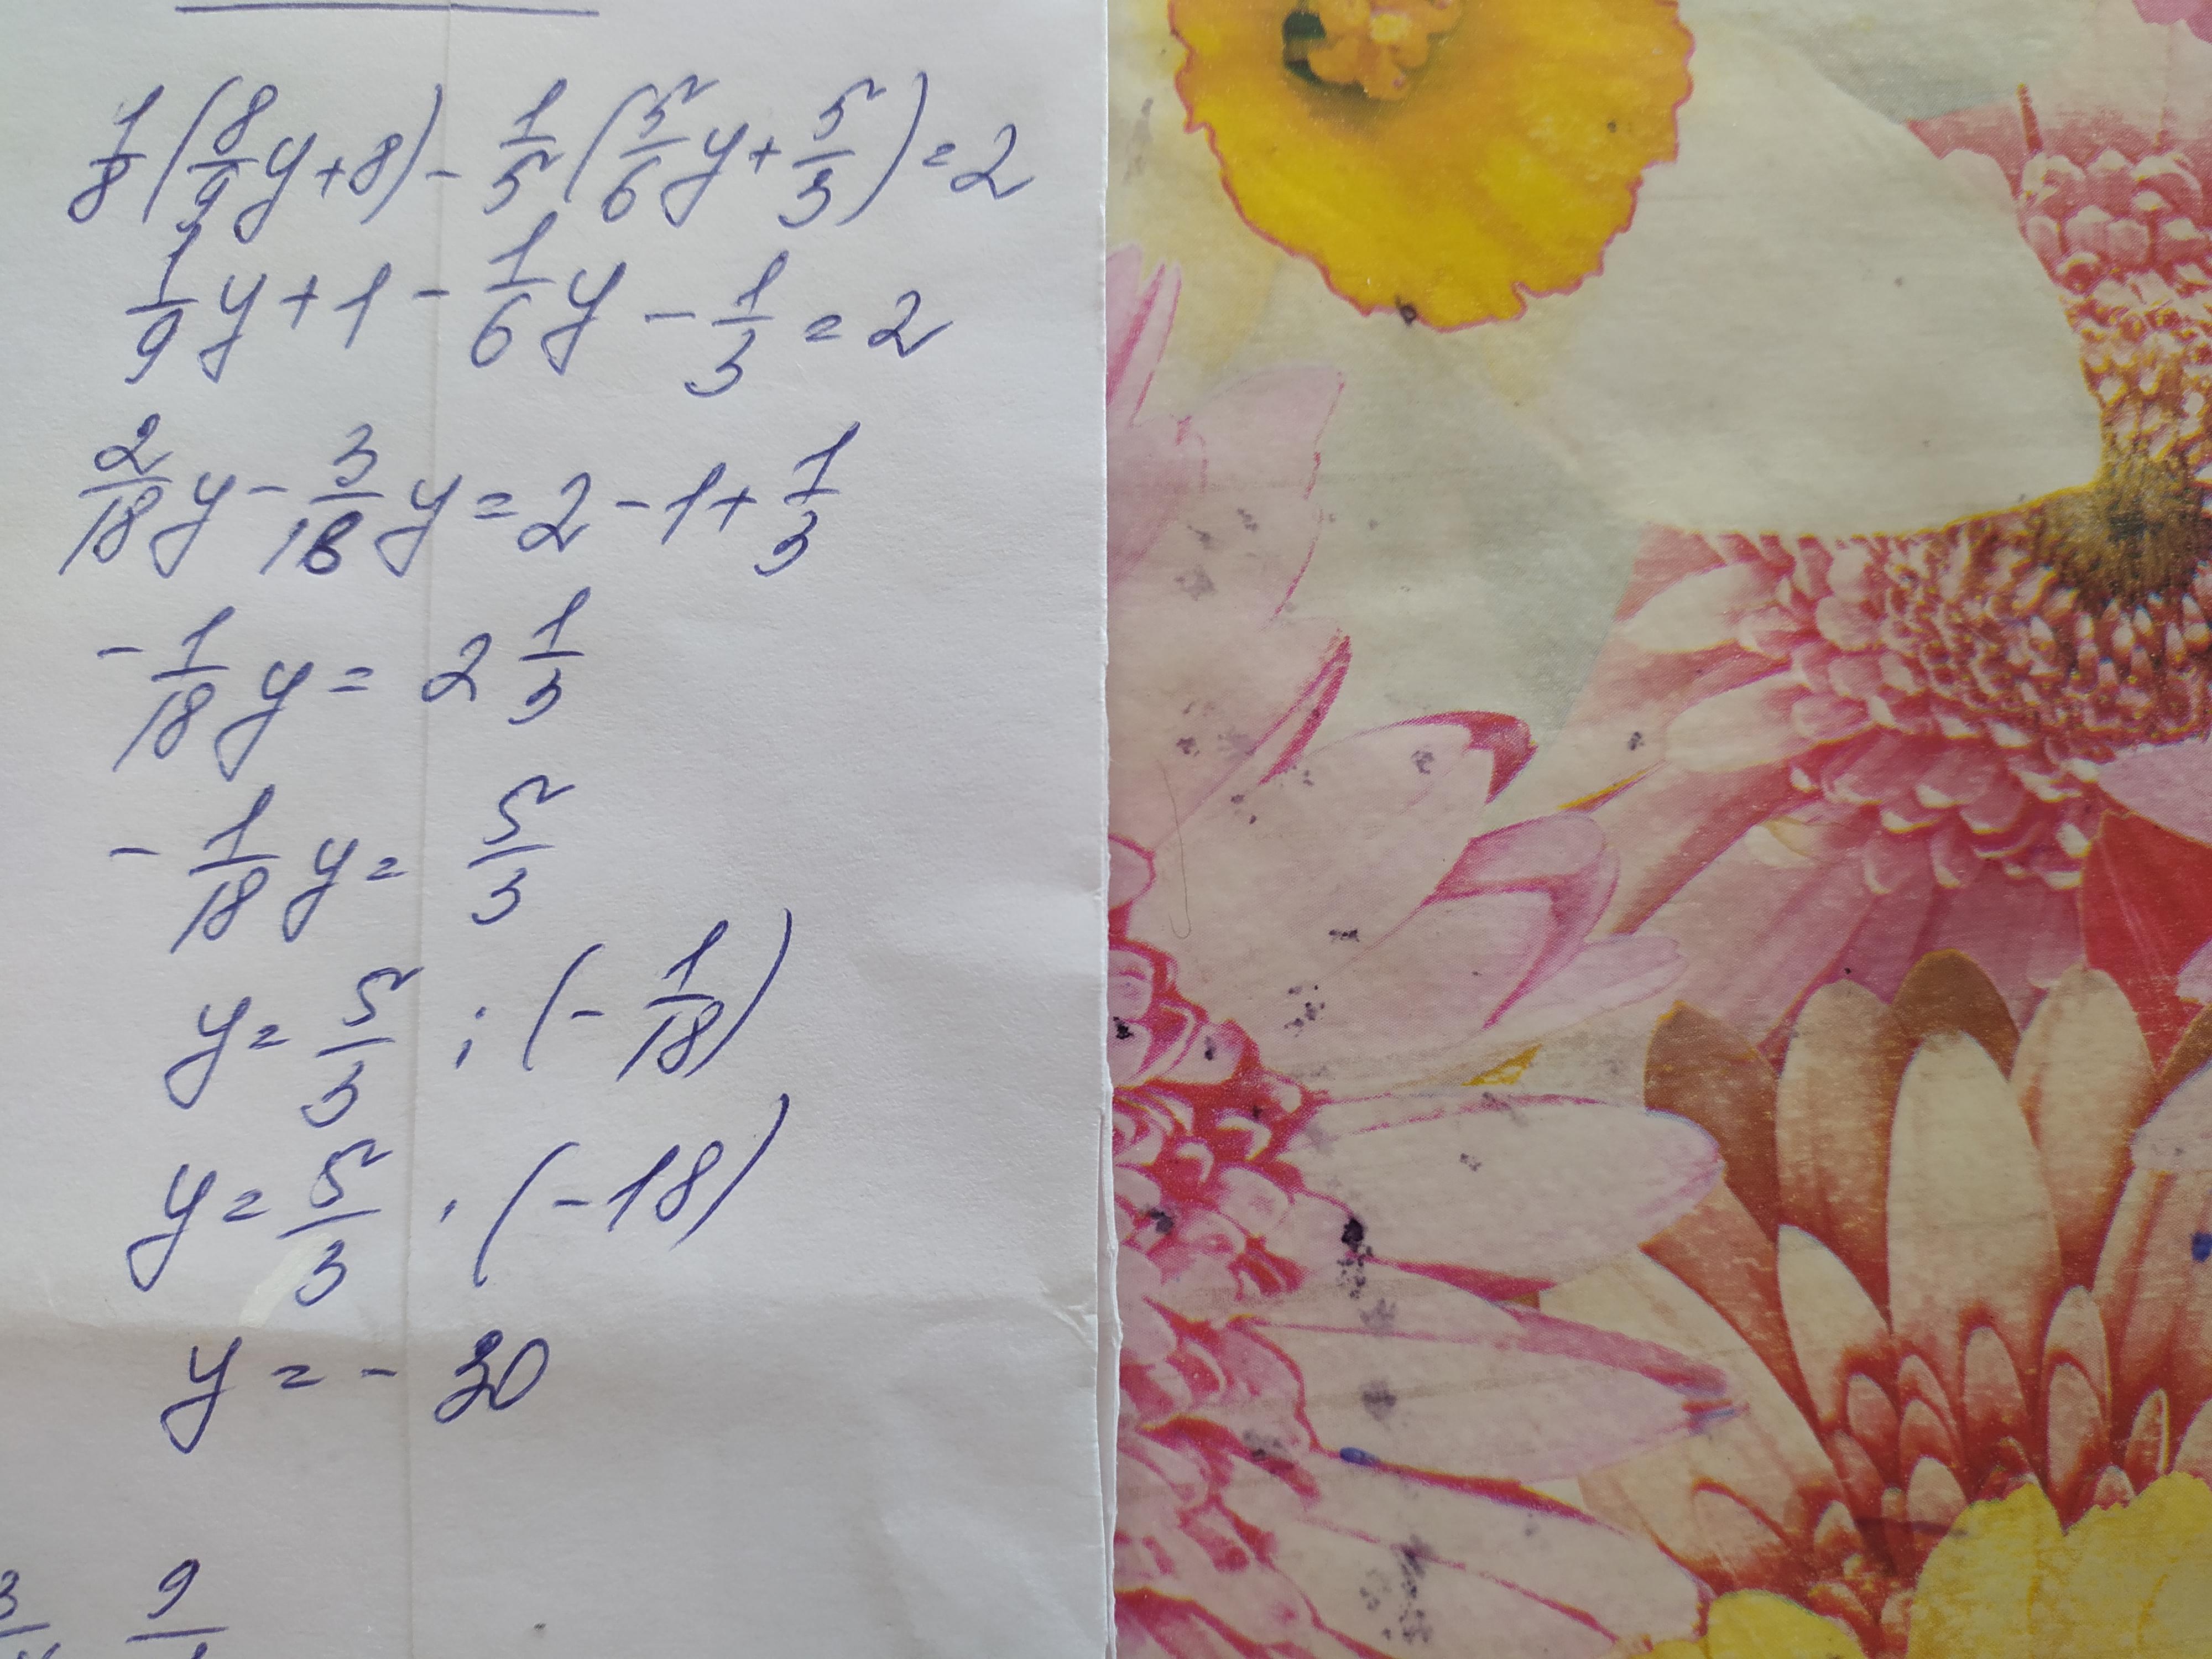 1/8(8/9y+8)-1/5(5/6y+5/3)=2
1/9y+1-1/6y-1/3=2
2/18y-3/18y=2-1+1/3
-1/18y=2 1/3
-1/18y=5/3
y=5/3:(-1/18)
y=5/3·(-18)
y=-30
3 9